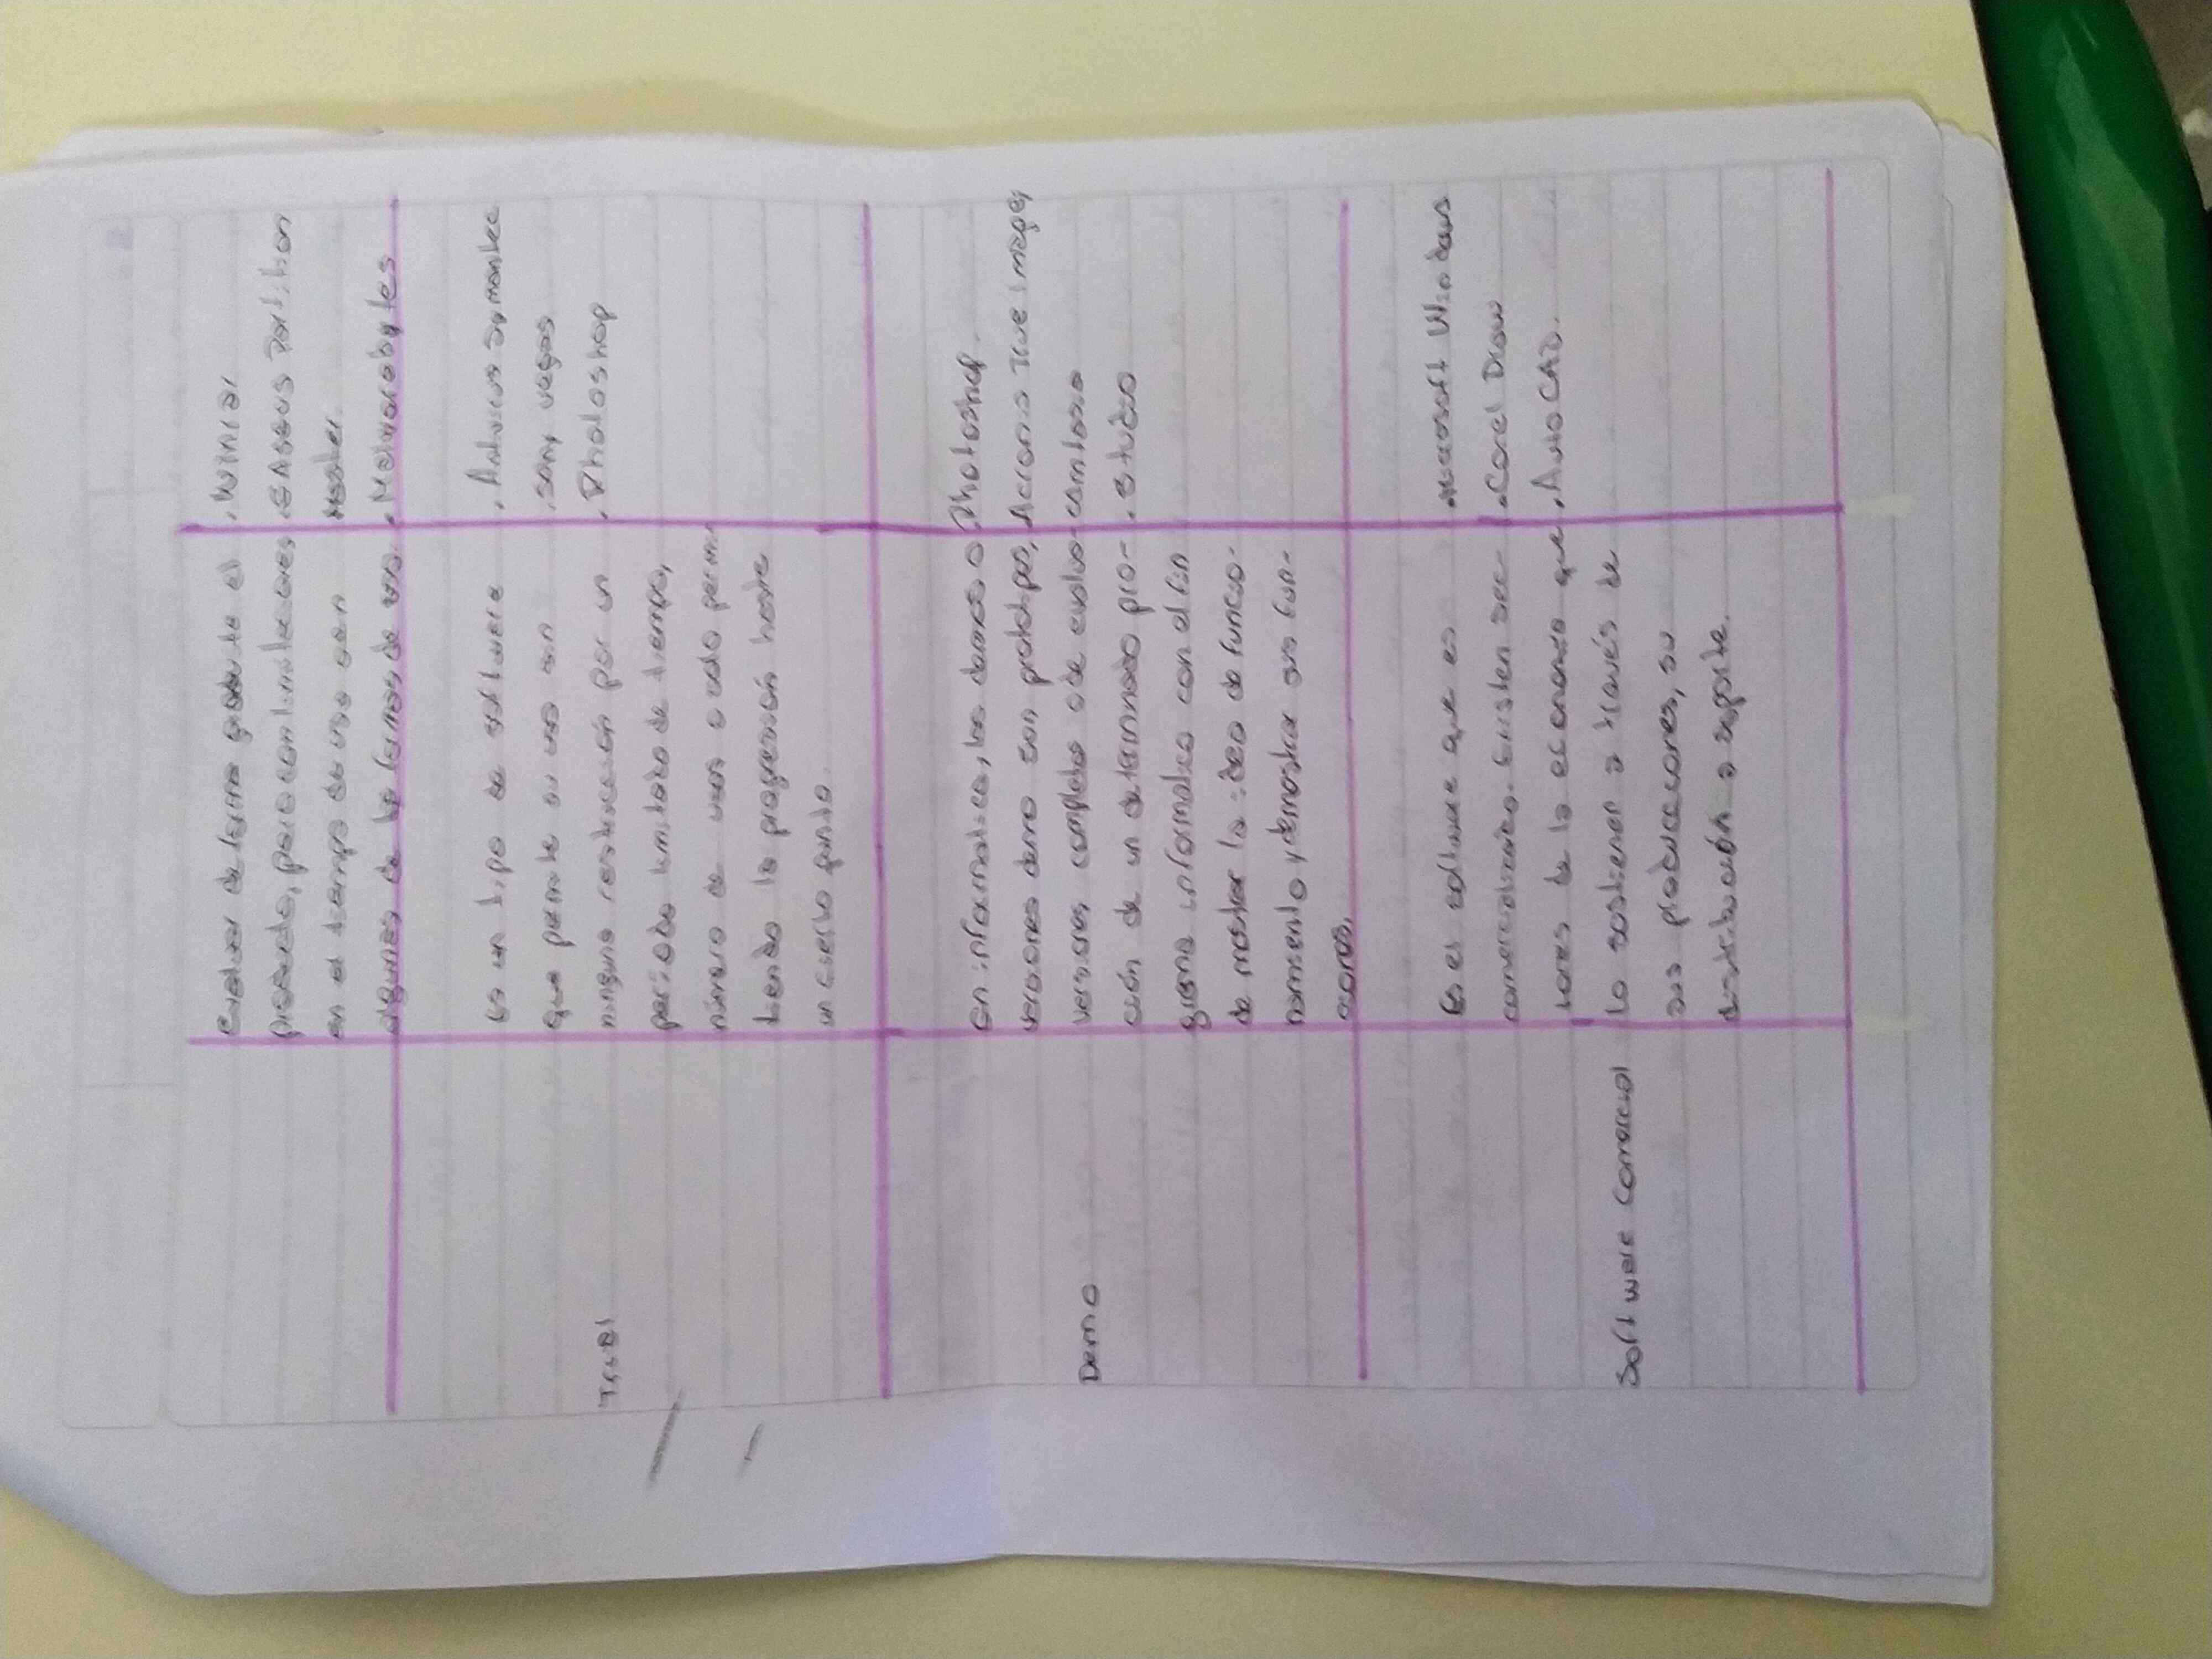 evaluar de forma gratuita el
producto, pero con limitaciones
en el tiempo de uso o en
algunas de las formas de uso.
. Winrar
. EASEUS Partition
Master.
. Malwarebytes
Trial
Es un tipo de software
que permite su uso sin
ninguna restricción por un
periodo limitado de tiempo,
número de usos o solo permi
tiendo la progresión hasta
un cierto punto.
. Antivirus symantec
. sony vegas
. Photoshop
Demo
En informática, los demos o
versiones demo son prototipos,
versiones completas o de evalua-
ción de un determinado pro-
grama informatico con el fin
de mostrar la idea de funcio-
namiento y demostrar sus fun-
ciones.
Photoshop.
Acronis True image,
camtasia
. studio
Software Comercial
Es el software que es
comercializado. Existen sec-
tores de la economía que
lo sostienen a través de
sus producciones, su
distribución o soporte.
. Microsoft Windows
. Corel Draw
. AutoCAD.